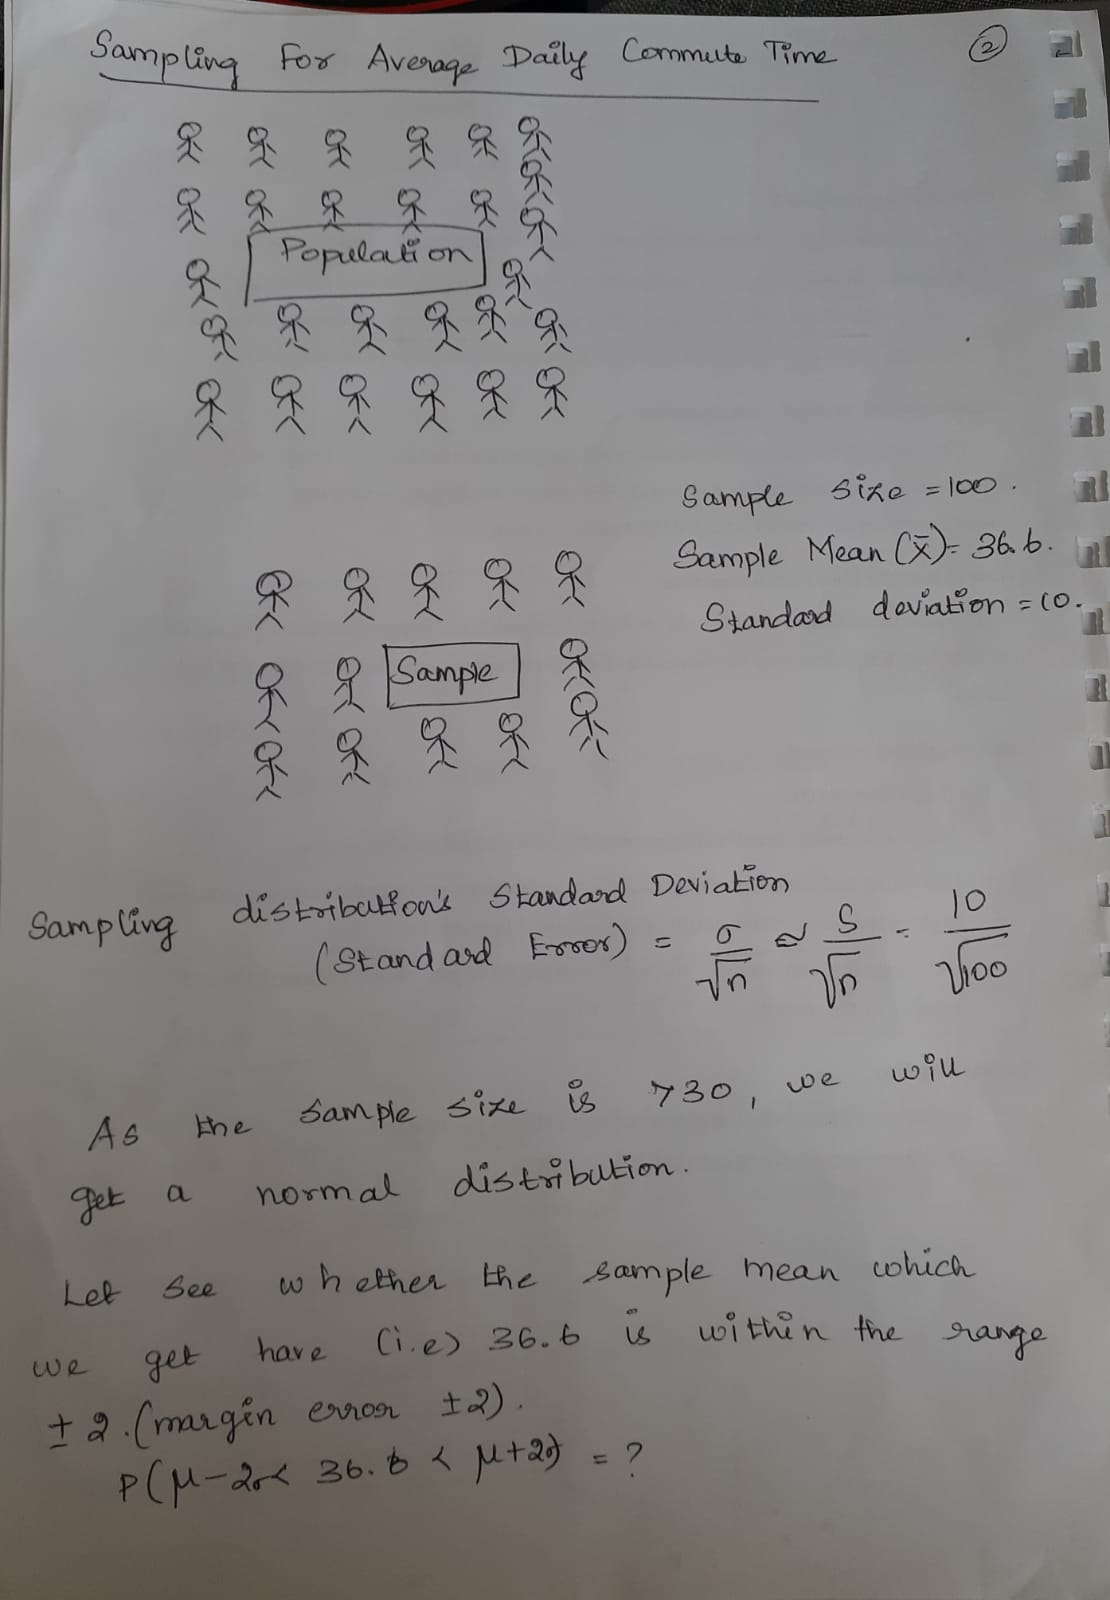 Sampling For Average Daily Commute Time
2
Population
Sample size = 100.
Sample Mean (x̄) = 36.6.
Standard deviation = 10.
Sample
Sampling distribution's Standard Deviation
(Standard Error) = σ/√n ≈ S/√n = 10/√100
As the sample size is >30, we will
get a normal distribution.
Let see whether the sample mean which
we get have (i.e) 36.6 is within the range
± 2. (margin error ±2).
P(μ-2σ< 36.6 < μ+2σ) = ?